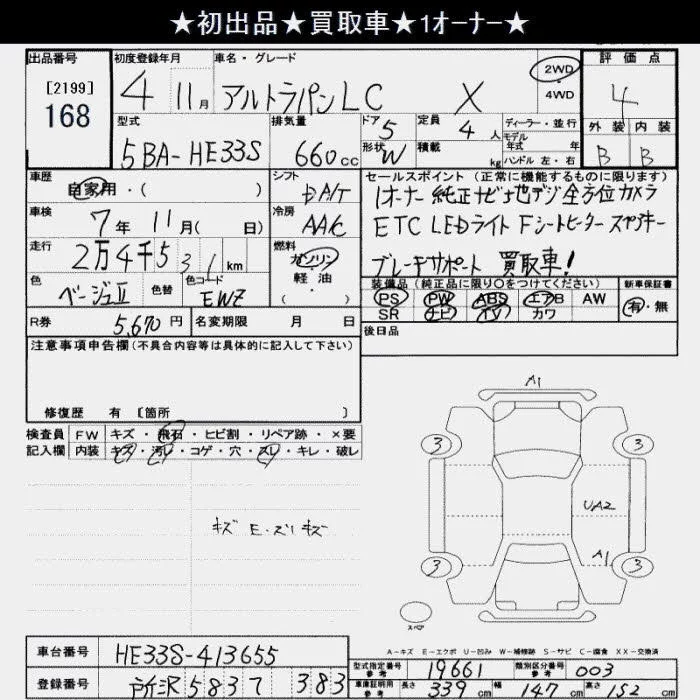 ★初出品★買取車★1ｵｰﾅｰ★
出品番号 初度登録年月 車名・グレード 評価点
[2199]
168
4 11月 アルトラパンLC X 2WD ・ 4WD 4
型式 排気量 ドア 5 定員 4人 ディーラー・並行 外装 内装
5BA-HE33S 660cc 形状 W 積載 kg モデル年式 年 ハンドル 左・右 B B
車歴 自家用・( ) シフト DA/T セールスポイント (正常に機能するものに限ります)
1オーナー 純正ナビ 地デジ 全方位カメラ
車検 7年 11月( 日) 冷房 AA/C ETC LEDライト Fシートヒーター スペアキー
走行 2万4千531km 燃料 ガソリン・軽油・( ) ブレーキサポート 買取車!
色 ベージュII 色替 色コード EWZ 装備品 (純正品に限り○をつけてください) 新車保証書
PS PW ABS エアB AW 有・無
SR ナビ TV カワ
R券 5,670円 名変期限 月 日 後日品
注意事項申告欄(不具合内容等は具体的に記入して下さい)
修復歴 有 [箇所 ]
検査員 FW キズ・飛石・ヒビ割・リペア跡・×要
記入欄 内装 キズ・汚レ・コゲ・穴・スレ・キレ・破レ
キズ E・ズリキズ
A1
3 3
UA2
A1
3 3
スペア
A-キズ E-エクボ U-凹み W-補修跡 S-サビ C-腐食 XX-交換済
車台番号 HE33S-413655
型式指定番号 参考 19661 類別区分番号 参考 003
登録番号 所沢 583 ワ 383
車庫証明用 参考 長さ 339cm 幅 147cm 高さ 152cm